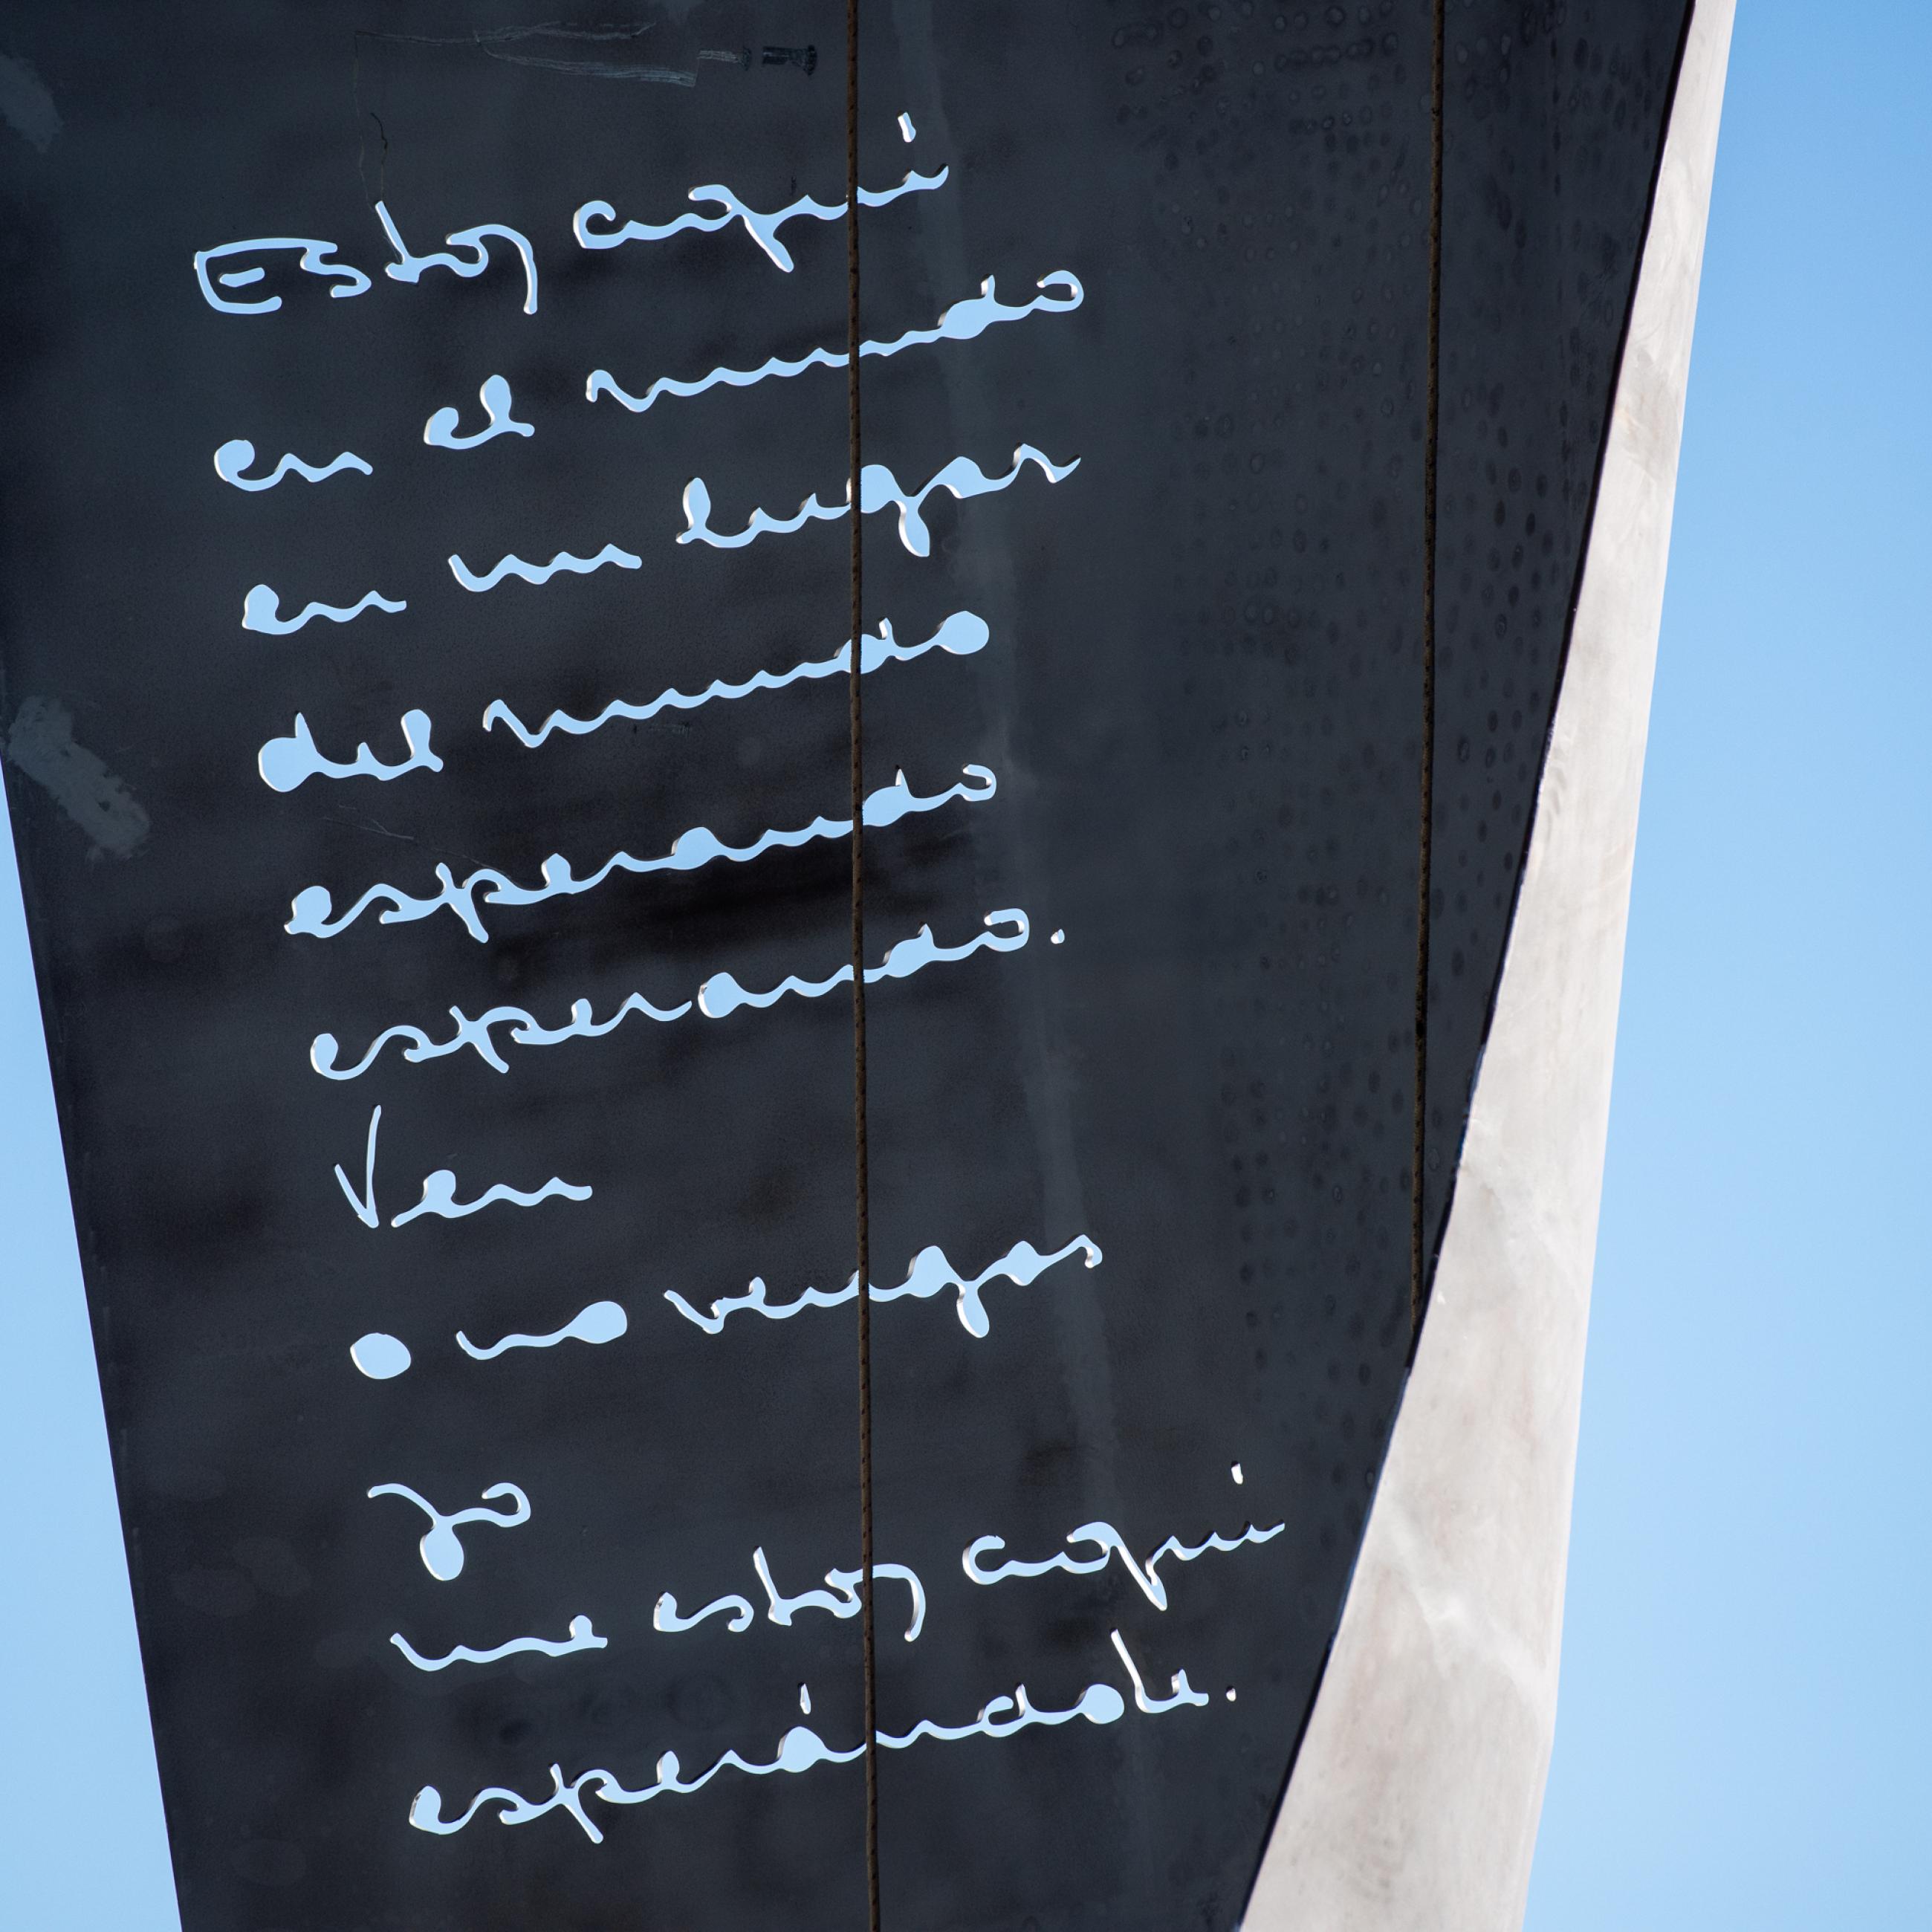 Estoy aquí
en el mundo
en un lugar
del mundo
esperando
esperando.
Ven
o no vengas
yo
me estoy aquí
esperándote.